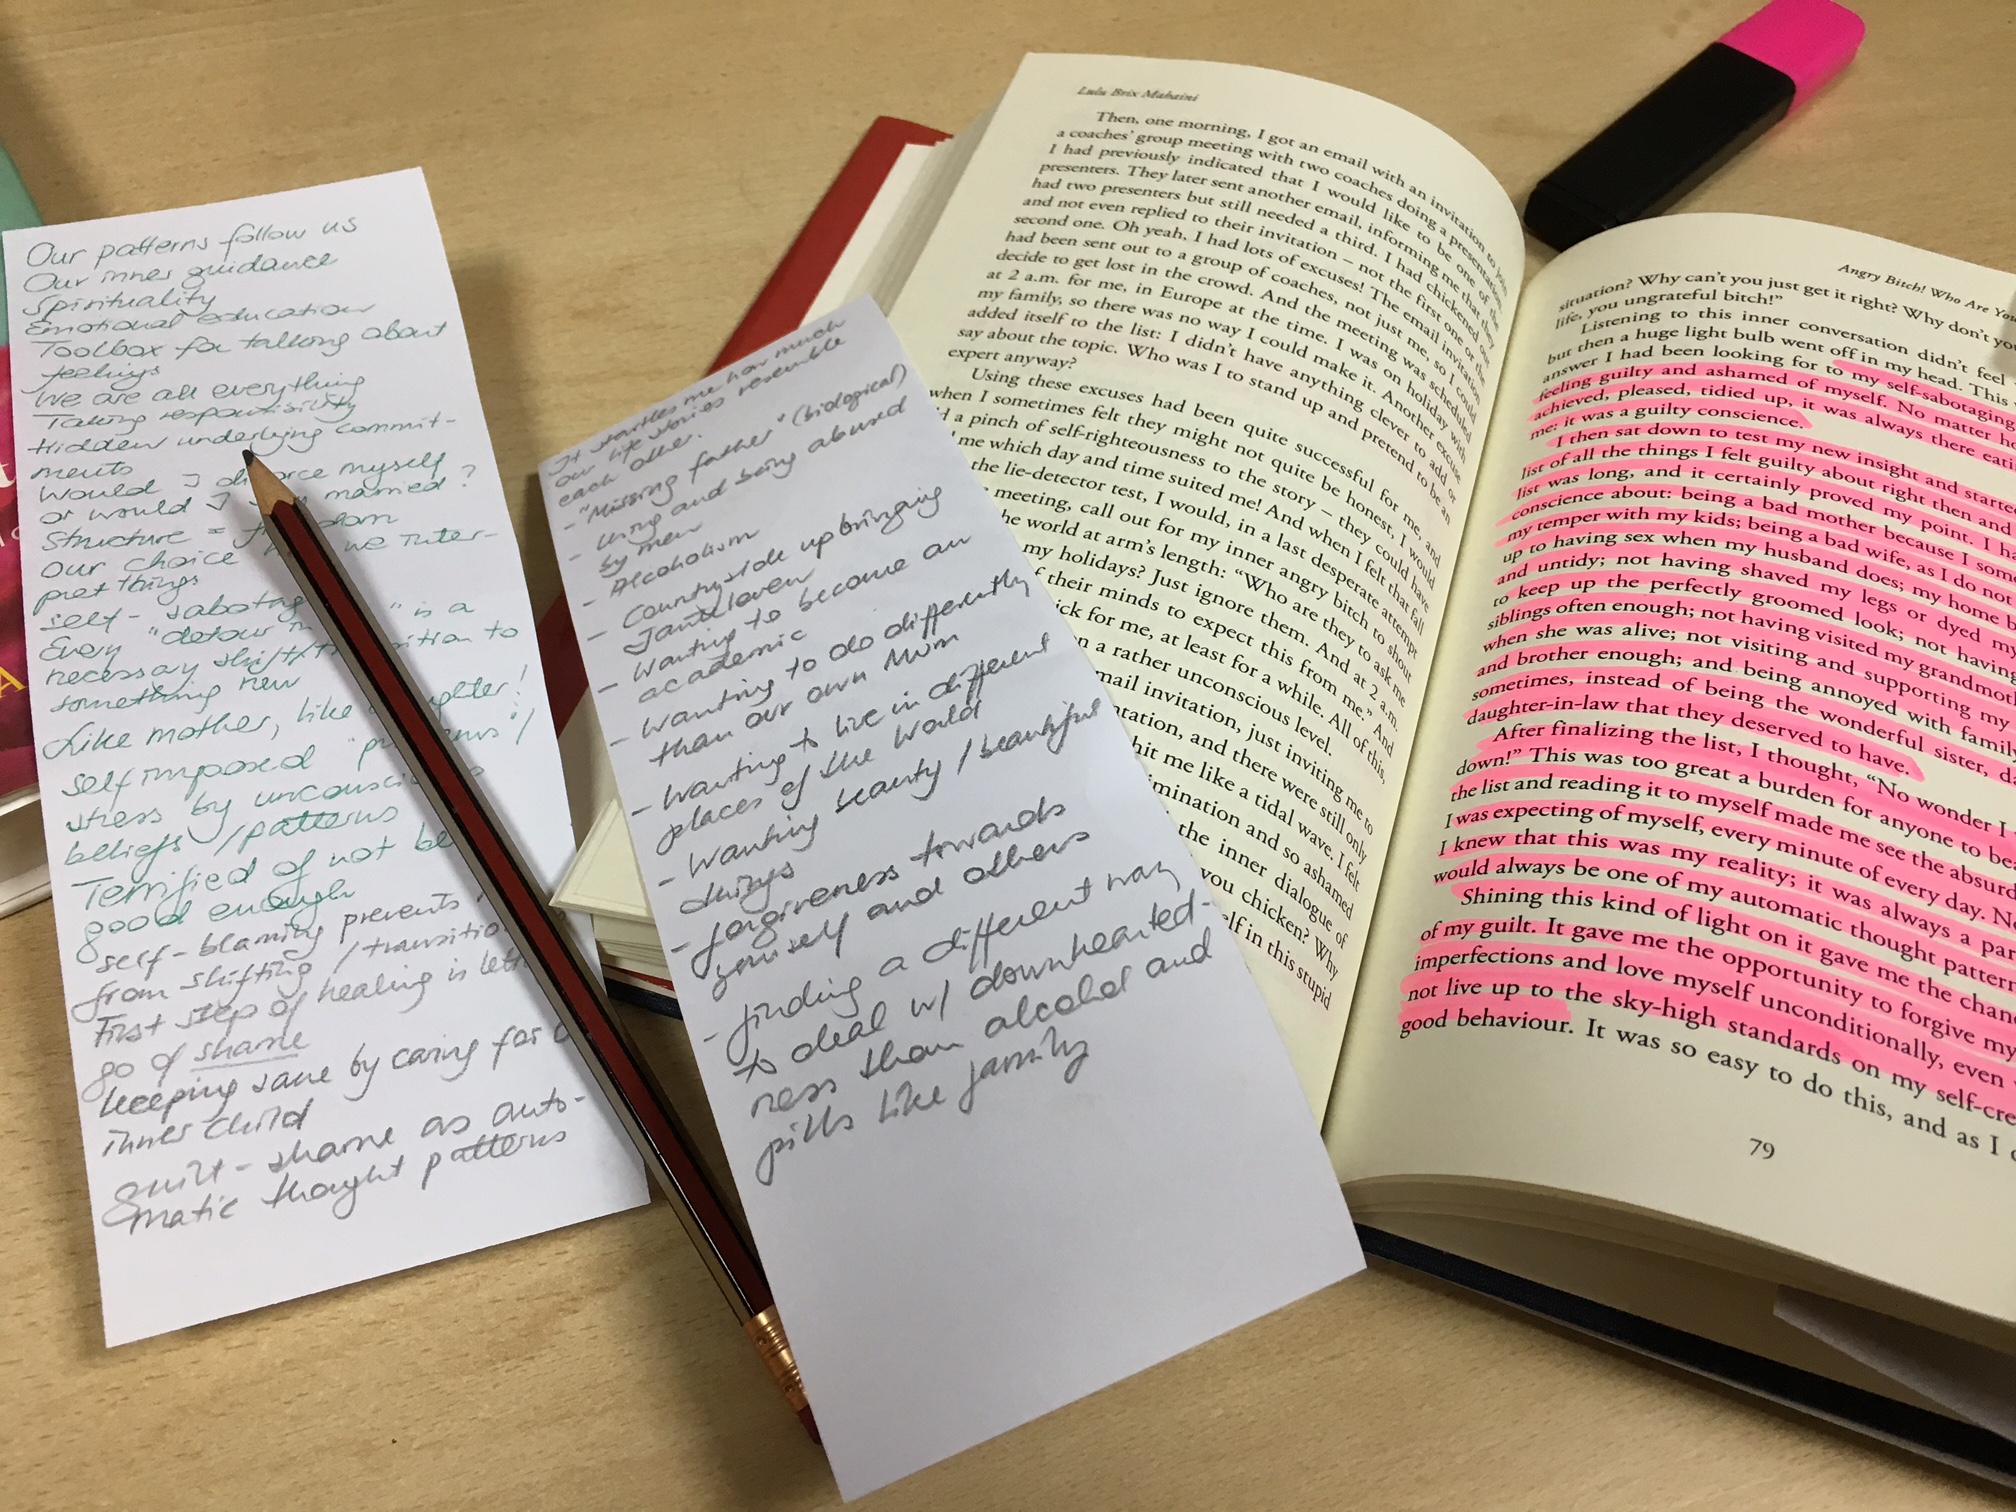 Our patterns follow us
Our inner guidance
Spirituality
Emotional education
Toolbox for talking about
feelings
We are all everything
Taking responsibility
Hidden underlying commit-
ments
Would I myself
or would I married?
Structure =
our choice we inter-
pret things
self-
Every "detour " is a
necessary shift/ to
something new
Like mother, like !
self imposed
stress by
beliefs / patterns
Terrified of not
good enough
self-blaming prevents
from shifting /
First step of healing is
go of shame
keeping sane by caring for
inner child
guilt - shame as auto-
matic thought patterns
It startles me how much
our life stories resemble
each other.
- "Missing father" (biological)
- using and being abused
by men
- Alcoholism
- Countryside upbringing
Janteloven
- Wanting to become an
academic
- Wanting to do differently
than our own Mum
- Wanting to live in different
places of the World
- Wanting beauty / beautiful
things
- forgiveness towards
yourself and others
- finding a different way
to deal w/ downhearted-
ness than alcohol and
pills like family
Lulu Brix Mahaini
Then, one morning, I got an email with an invitation to join
a coaches' group meeting with two coaches doing a presentation.
I had previously indicated that I would like to be one of the
presenters. They later sent another email, informing me that they
had two presenters but still needed a third. I had chickened out
and not even replied to their invitation – not the first one or the
second one. Oh yeah, I had lots of excuses! The email invitation
had been sent out to a group of coaches, not just me, so I could
decide to get lost in the crowd. And the meeting was scheduled
at 2 a.m. for me, in Europe at the time. I was on holiday with
my family, so there was no way I could make it. Another excuse
added itself to the list: I didn't have anything clever to add or
say about the topic. Who was I to stand up and pretend to be an
expert anyway?
Using these excuses had been quite successful for me, and
when I sometimes felt they might not quite be honest, I would
a pinch of self-righteousness to the story – they could have
me which day and time suited me! And when I felt that I'd fall
the lie-detector test, I would, in a last desperate attempt
meeting, call out for my inner angry bitch to shout
the world at arm's length: "Who are they to ask me
my holidays? Just ignore them. And at 2 a.m.
f their minds to expect this from me." And
ick for me, at least for a while. All of this,
n a rather unconscious level.
mail invitation, just inviting me to
ntation, and there were still only
hit me like a tidal wave. I felt
imination and so ashamed
the inner dialogue of
you chicken? Why
elf in this stupid
Angry Bitch! Who Are You
situation? Why can't you just get it right? Why don't you
life, you ungrateful bitch!"
Listening to this inner conversation didn't feel
but then a huge light bulb went off in my head. This
answer I had been looking for to my self-sabotaging
feeling guilty and ashamed of myself. No matter
achieved, pleased, tidied up, it was always there eati
me; it was a guilty conscience.
I then sat down to test my new insight and starte
list of all the things I felt guilty about right then and
list was long, and it certainly proved my point. I ha
conscience about: being a bad mother because I som
my temper with my kids; being a bad wife, as I do not
up to having sex when my husband does; my home b
and untidy; not having shaved my legs or dyed my
to keep up the perfectly groomed look; not having
siblings often enough; not having visited my grandmoth
when she was alive; not visiting and supporting my
and brother enough; and being annoyed with family
sometimes, instead of being the wonderful sister, da
daughter-in-law that they deserved to have.
After finalizing the list, I thought, "No wonder I
down!" This was too great a burden for anyone to be
the list and reading it to myself made me see the absurd
I was expecting of myself, every minute of every day. No
I knew that this was my reality; it was always a par
would always be one of my automatic thought pattern
Shining this kind of light on it gave me the chan
of my guilt. It gave me the opportunity to forgive my
imperfections and love myself unconditionally, even
not live up to the sky-high standards on my self-cre
good behaviour. It was so easy to do this, and as I
79